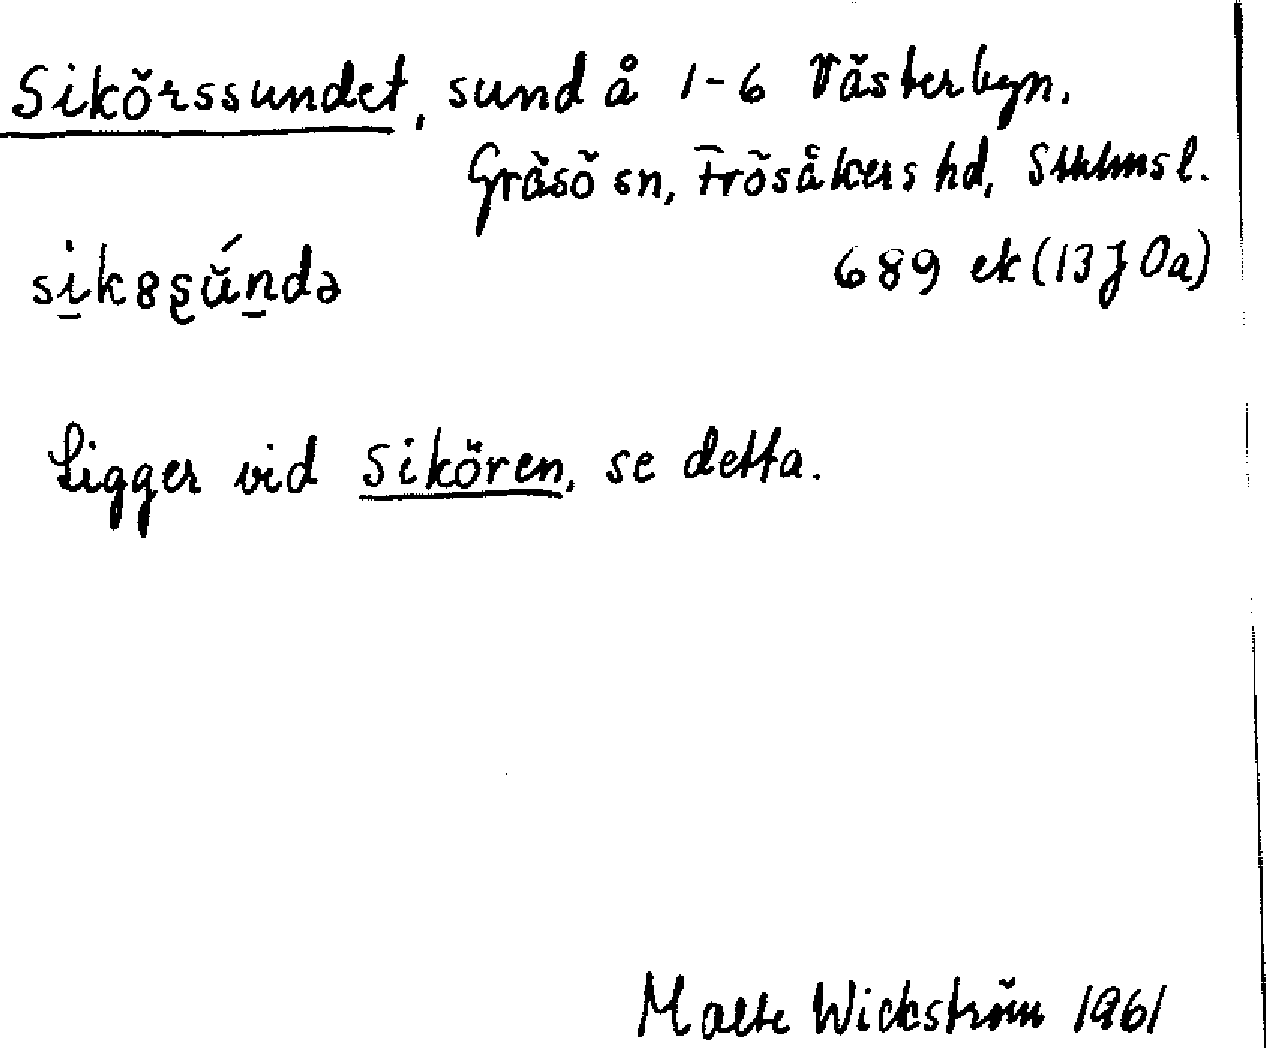 Sikörssundet, sund å 1-6 Västerbyn.
Gräsö sn, Frösåkers hd, Sthlms l.
689 ek (13 J 0a)
Ligger vid Sikören, se detta.
Malte Wickström 1961